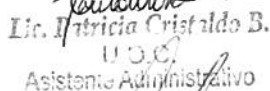 Lic. Patricia Cristaldo B.
U.O.C.
Asistente Administrativo